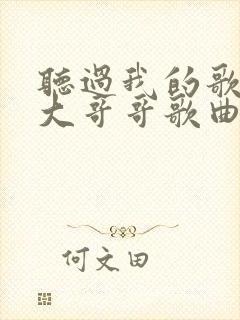 聽過我的歌
大哥哥歌曲
何文田